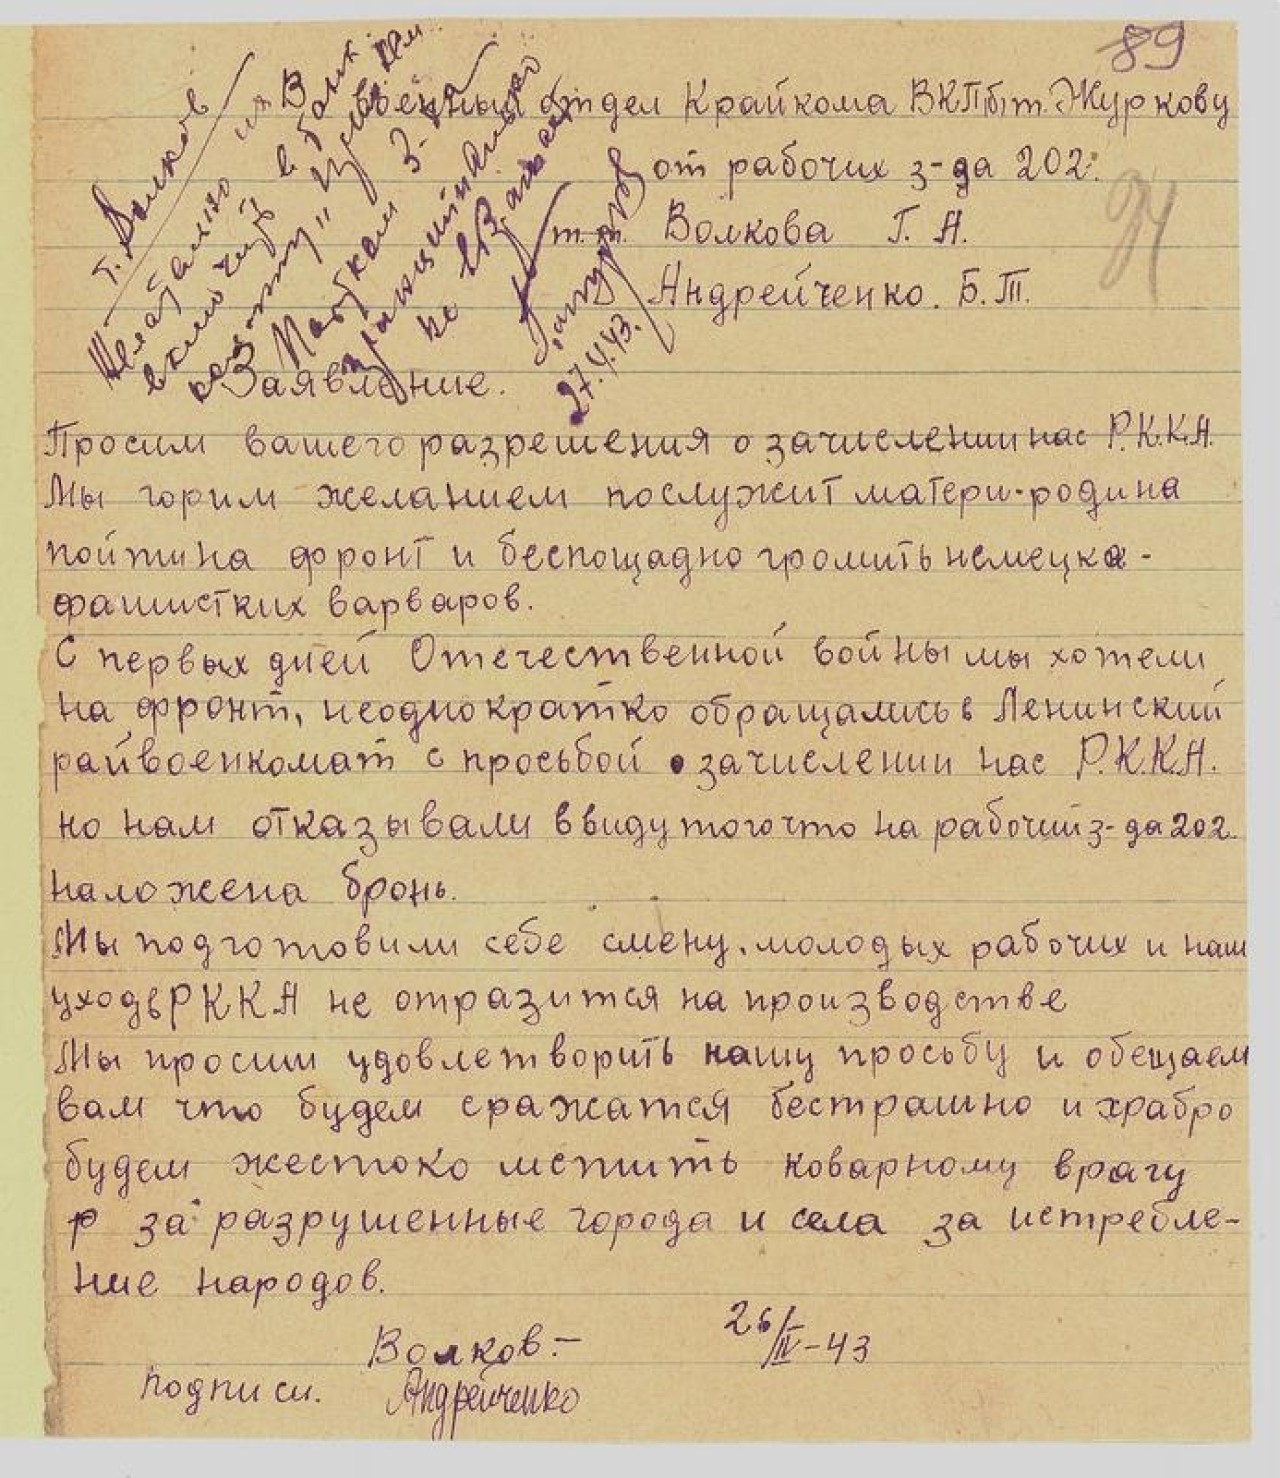 89
Военный отдел Крайкома ВКПбт. Журкову
от рабочих з-да 202.
т.т. Волкова Г. А.
Андрейченко. Б. Т.
т. Волков
27.4.43.
Заявление.
Просим вашего разрешения о зачислении нас Р.К.К.А.
Мы горим желанием послужит матери-родина
пойти на фронт и беспощадно громить немецка-
фашистких варваров.
С первых дней Отечественной войны мы хотели
на фронт, неоднократко обращались в Ленинский
райвоенкомат с просьбой о зачислении нас Р.К.К.А.
но нам отказывали ввиду того что на рабочий з-да 202.
наложена бронь.
Мы подготовили себе смену. молодых рабочих и наш
уход в РККА не отразится на производстве
Мы просим удовлетворить нашу просьбу и обещаем
вам что будем сражатся бестрашно и храбро
будем жестоко мстить коварному врагу
за разрушенные города и села за истребле-
ние народов.
Волков.-
26/IV-43
подписи. Андрейченко